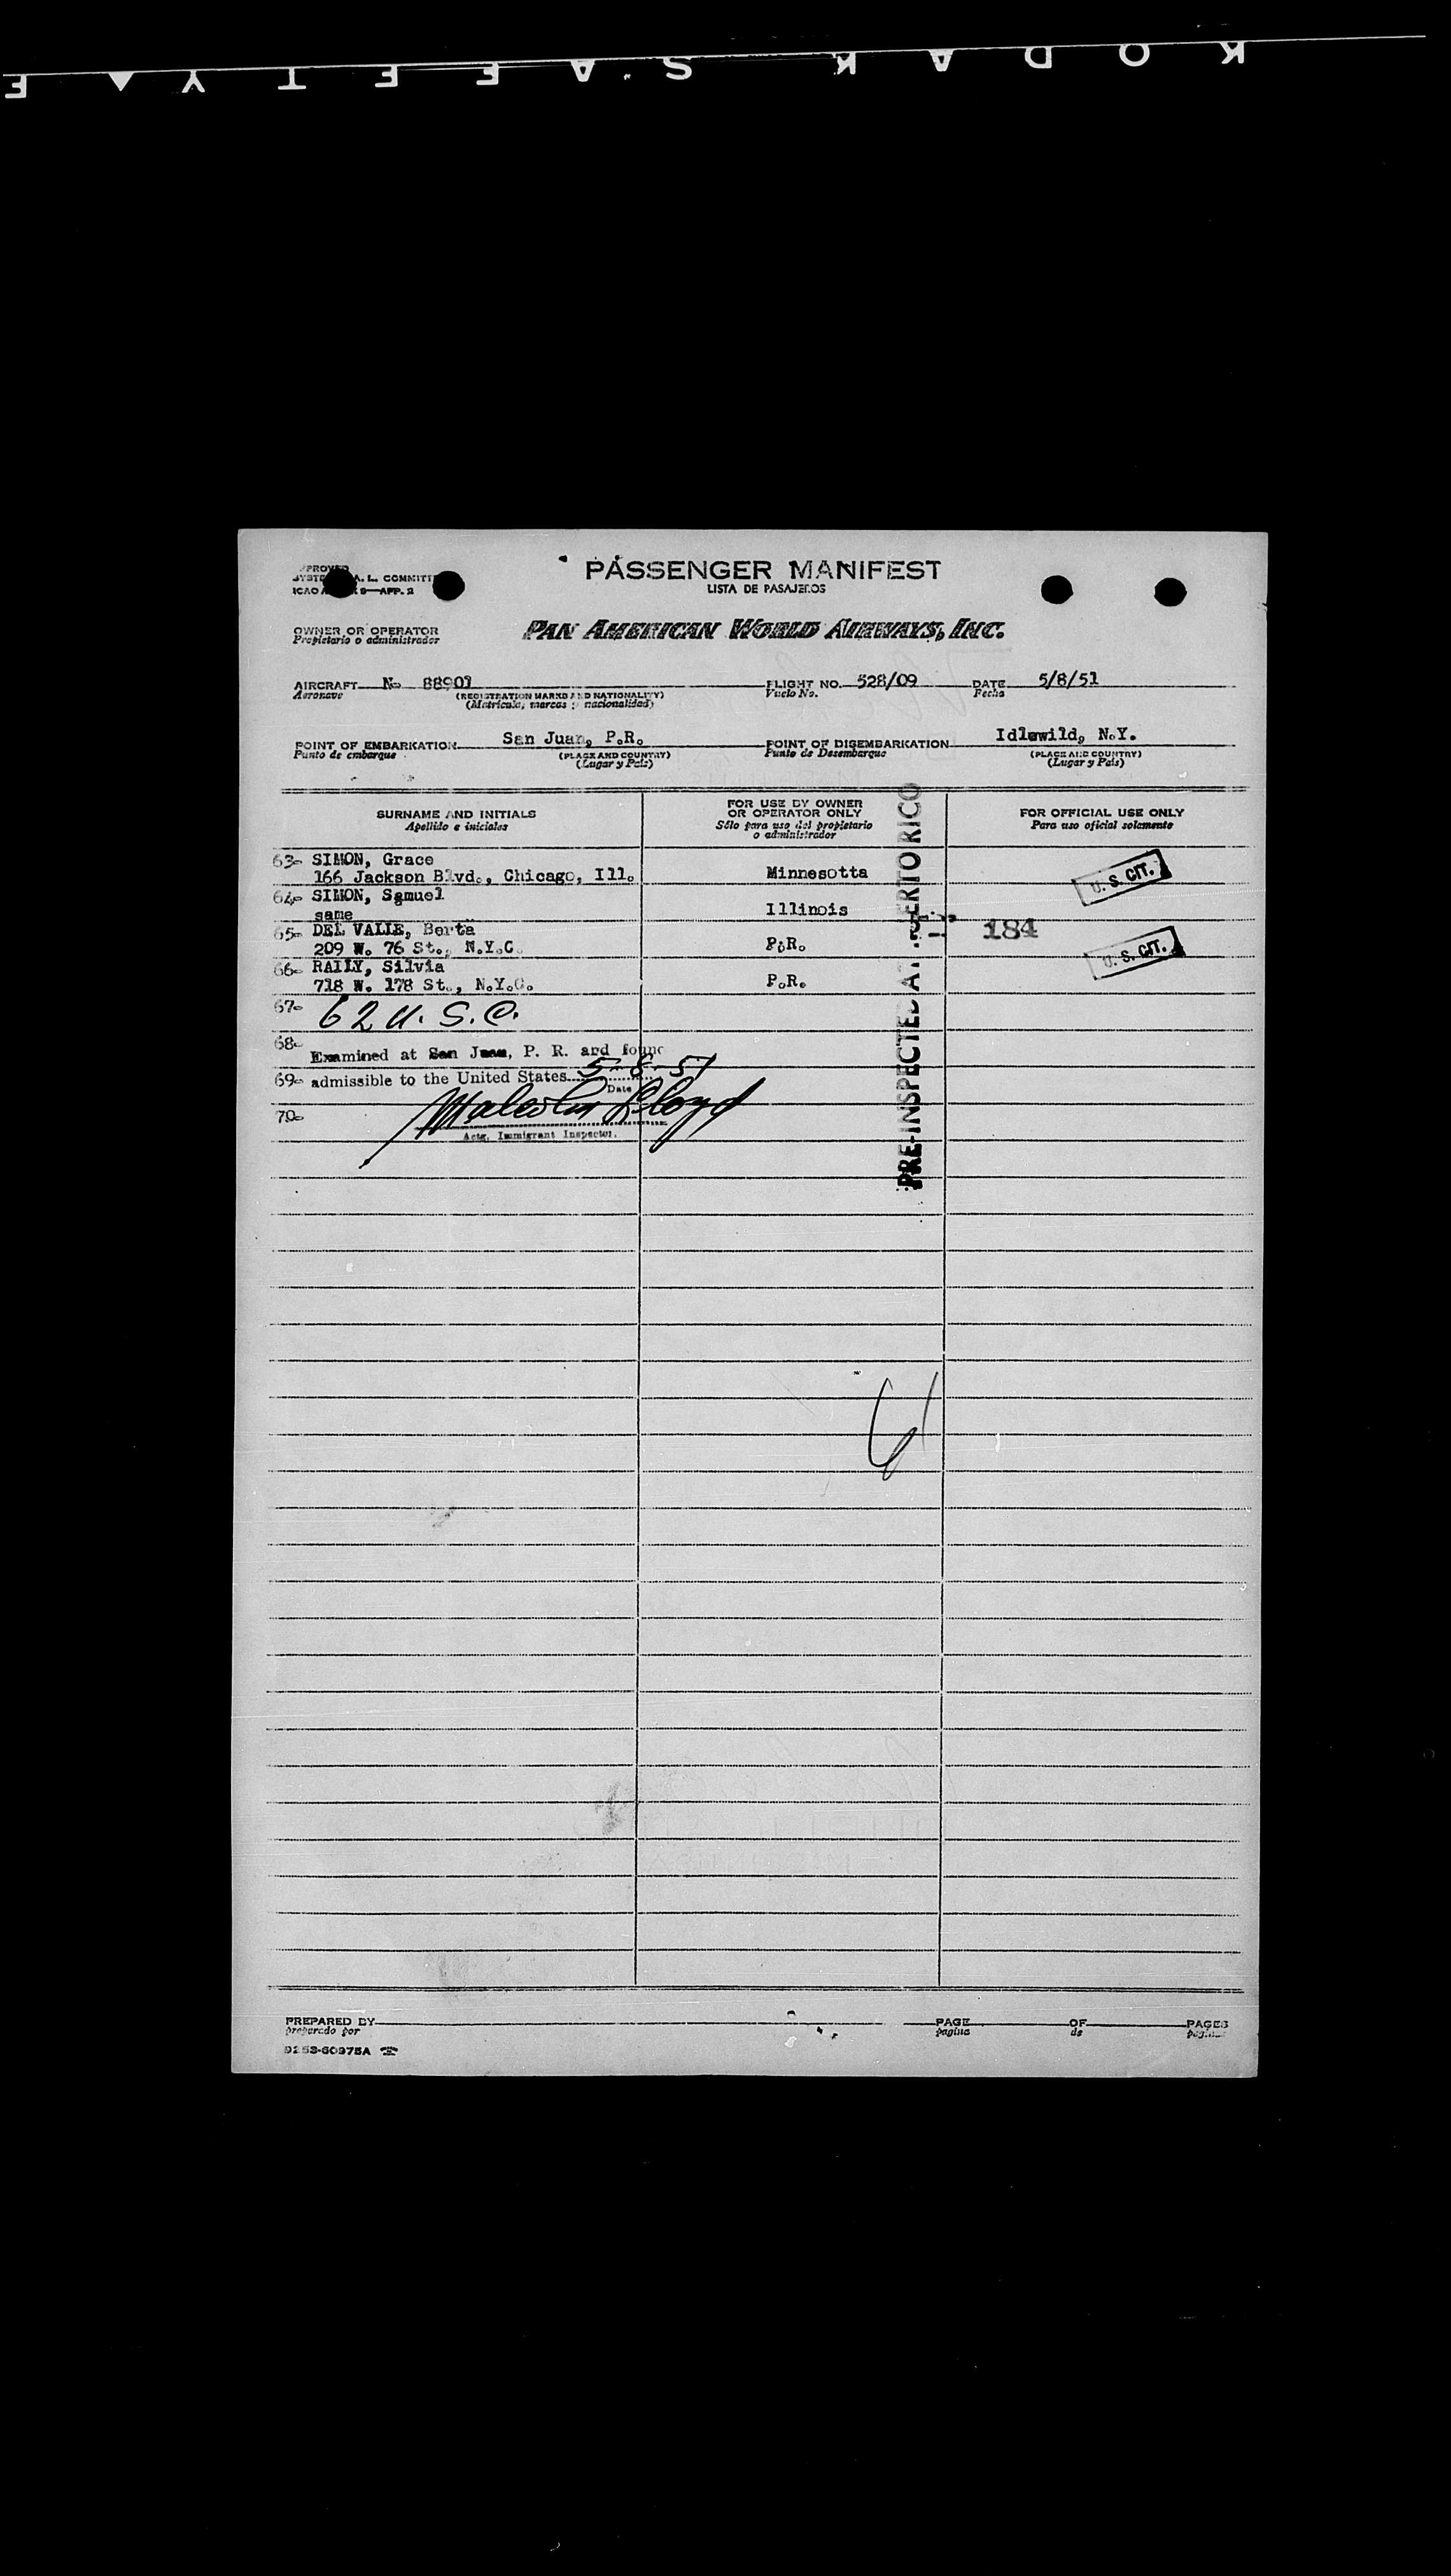 KODAK SAFETY
PASSENGER MANIFEST
LISTA DE PASAJEROS
OWNER OR OPERATOR
Propietario o administrador
PAN AMERICAN WORLD AIRWAYS, INC.
AIRCRAFT N- 88901 FLIGHT NO. 528/09 DATE 5/8/51
Aeronave (REGISTRATION MARKS AND NATIONALITY) Vuelo No. Fecha
(Matricula, marcas y nacionalidad)
POINT OF EMBARKATION San Juan, P.R. POINT OF DISEMBARKATION Idlewild, N.Y.
Punto de embarque (PLACE AND COUNTRY) Punto de Desembarque (PLACE AND COUNTRY)
(Lugar y País) (Lugar y País)
SURNAME AND INITIALS FOR USE BY OWNER OR OPERATOR ONLY FOR OFFICIAL USE ONLY
Apellido e iniciales Sólo para uso del propietario o administrador Para uso oficial solamente
63- SIMON, Grace
166 Jackson Blvd., Chicago, Ill. Minnesotta U. S. CIT.
64- SIMON, Samuel
same Illinois
65- DEL VALLE, Berta 184
209 W. 76 St., N.Y.C. P.R. U. S. CIT.
66- RAILY, Silvia
718 W. 178 St., N.Y.C. P.R.
67- 62 U.S.C.
68- Examined at San Juan, P. R. and found
69- admissible to the United States 5-8-51
Date
70- Malcolm Lloyd
Actg. Immigrant Inspector.
PRE-INSPECTED AT PUERTO RICO
PREPARED BY PAGE OF PAGES
preparado por pagina de paginas